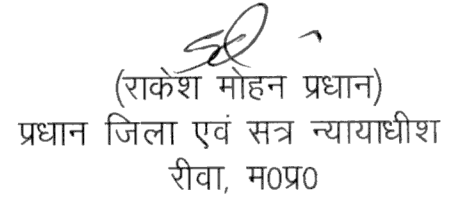 (राकेश मोहन प्रधान)
प्रधान जिला एवं सत्र न्यायाधीश
रीवा, म0प्र0